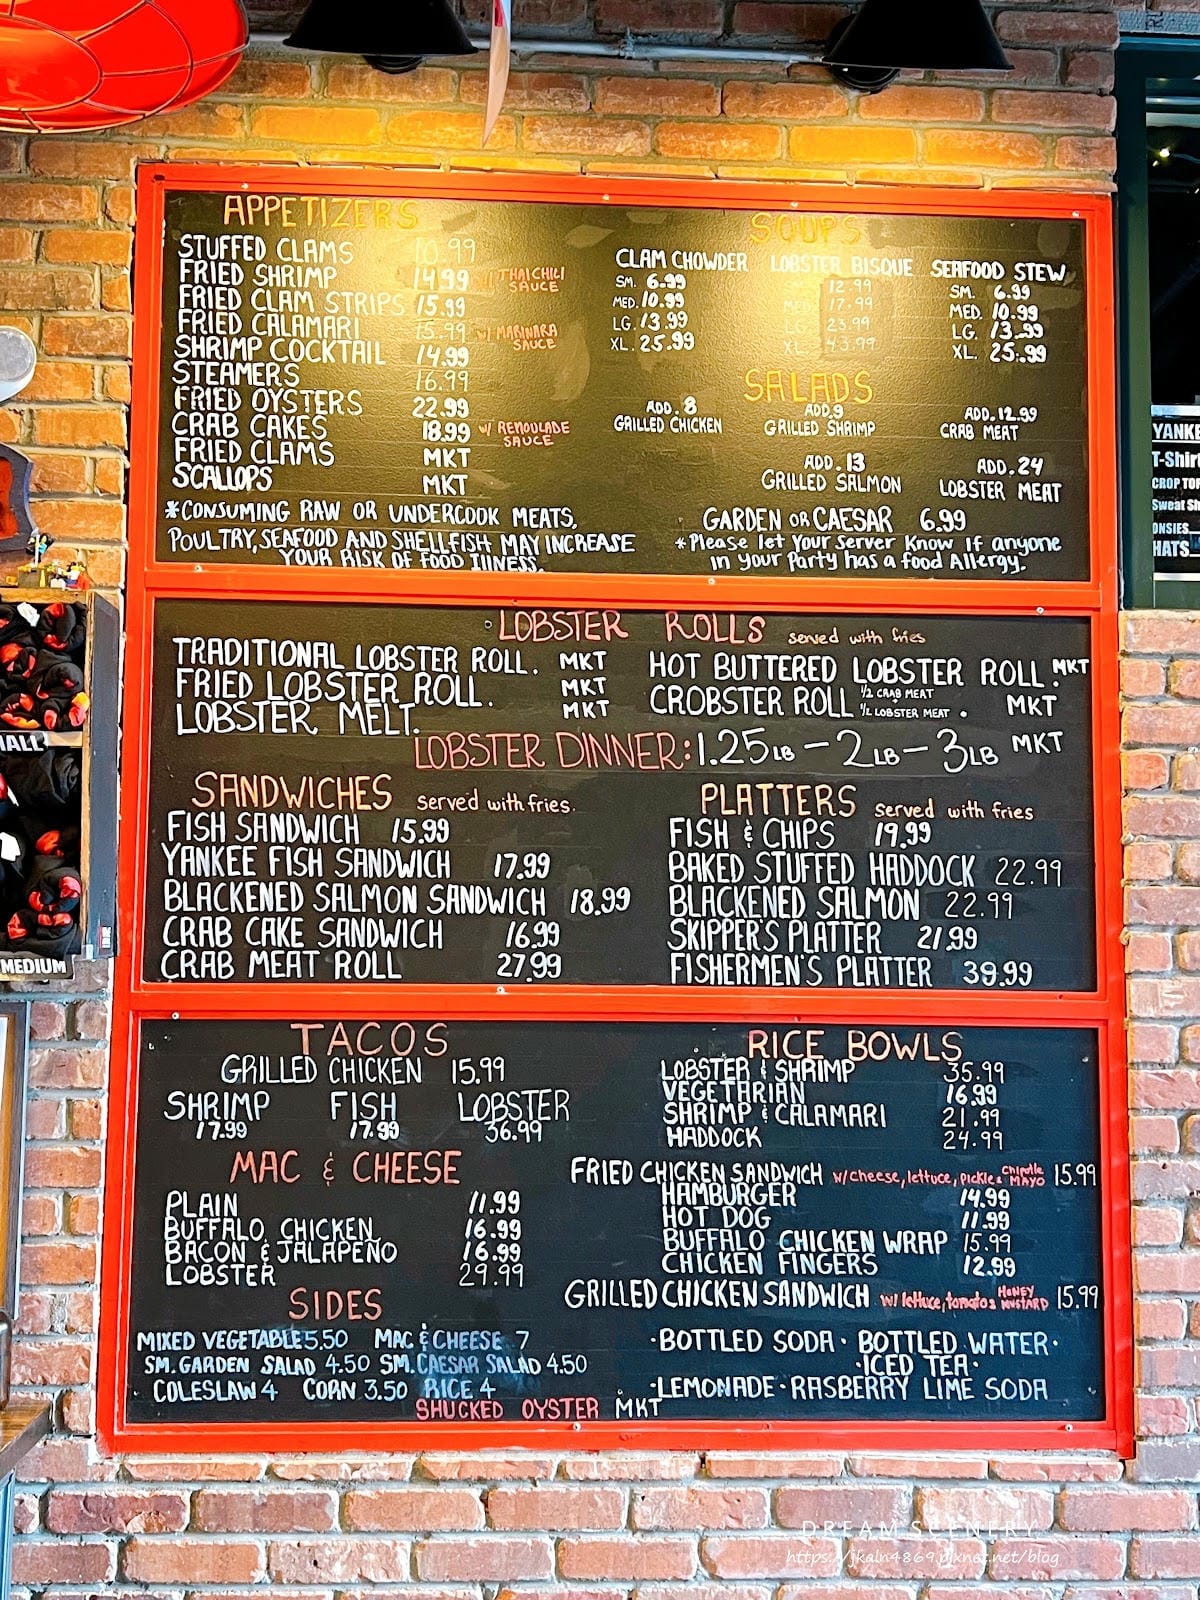 APPETIZERS
STUFFED CLAMS 10.99
FRIED SHRIMP 14.99 w/ THAI CHILI SAUCE
FRIED CLAM STRIPS 15.99
FRIED CALAMARI 15.99 w/ MARINARA SAUCE
SHRIMP COCKTAIL 14.99
STEAMERS 16.99
FRIED OYSTERS 22.99
CRAB CAKES 18.99 w/ REMOULADE SAUCE
FRIED CLAMS MKT
SCALLOPS MKT
*CONSUMING RAW OR UNDERCOOK MEATS,
POULTRY, SEAFOOD AND SHELLFISH MAY INCREASE
YOUR RISK OF FOOD ILLNESS.
SOUPS
CLAM CHOWDER LOBSTER BISQUE SEAFOOD STEW
SM. 6.99 SM. 12.99 SM. 6.99
MED. 10.99 MED. 17.99 MED. 10.99
LG. 13.99 LG. 23.99 LG. 13.99
XL. 25.99 XL. 43.99 XL. 25.99
SALADS
ADD. 8 ADD. 9 ADD. 12.99
GRILLED CHICKEN GRILLED SHRIMP CRAB MEAT
ADD. 13 ADD. 24
GRILLED SALMON LOBSTER MEAT
GARDEN OR CAESAR 6.99
*Please let Your Server Know If anyone
in your Party has a food Allergy.
LOBSTER ROLLS served with fries
TRADITIONAL LOBSTER ROLL. MKT HOT BUTTERED LOBSTER ROLL. MKT
FRIED LOBSTER ROLL. MKT CROBSTER ROLL 1/2 CRAB MEAT + 1/2 LOBSTER MEAT . MKT
LOBSTER MELT. MKT
LOBSTER DINNER: 1.25LB - 2LB - 3LB MKT
SANDWICHES served with fries.
FISH SANDWICH 15.99
YANKEE FISH SANDWICH 17.99
BLACKENED SALMON SANDWICH 18.99
CRAB CAKE SANDWICH 16.99
CRAB MEAT ROLL 27.99
PLATTERS served with fries
FISH & CHIPS 19.99
BAKED STUFFED HADDOCK 22.99
BLACKENED SALMON 22.99
SKIPPER'S PLATTER 21.99
FISHERMEN'S PLATTER 39.99
TACOS
GRILLED CHICKEN 15.99
SHRIMP FISH LOBSTER
17.99 17.99 36.99
MAC & CHEESE
PLAIN 11.99
BUFFALO CHICKEN 16.99
BACON & JALAPEÑO 16.99
LOBSTER 29.99
SIDES
MIXED VEGETABLE 5.50 MAC & CHEESE 7
SM. GARDEN SALAD 4.50 SM. CAESAR SALAD 4.50
COLESLAW 4 CORN 3.50 RICE 4
SHUCKED OYSTER MKT
RICE BOWLS
LOBSTER & SHRIMP 35.99
VEGETARIAN 16.99
SHRIMP & CALAMARI 21.99
HADDOCK 24.99
FRIED CHICKEN SANDWICH w/ cheese, lettuce, pickle & Chipotle MAYO 15.99
HAMBURGER 14.99
HOT DOG 11.99
BUFFALO CHICKEN WRAP 15.99
CHICKEN FINGERS 12.99
GRILLED CHICKEN SANDWICH w/ lettuce, tomato & HONEY MUSTARD 15.99
·BOTTLED SODA· BOTTLED WATER·
·ICED TEA·
·LEMONADE·RASBERRY LIME SODA
YANKE
T-Shirt
CROP TOP
Sweat Sh
ONSIES
HATS
ALL
MEDIUM
DREAM SCENERY
https://jkaln4869.pixnet.net/blog